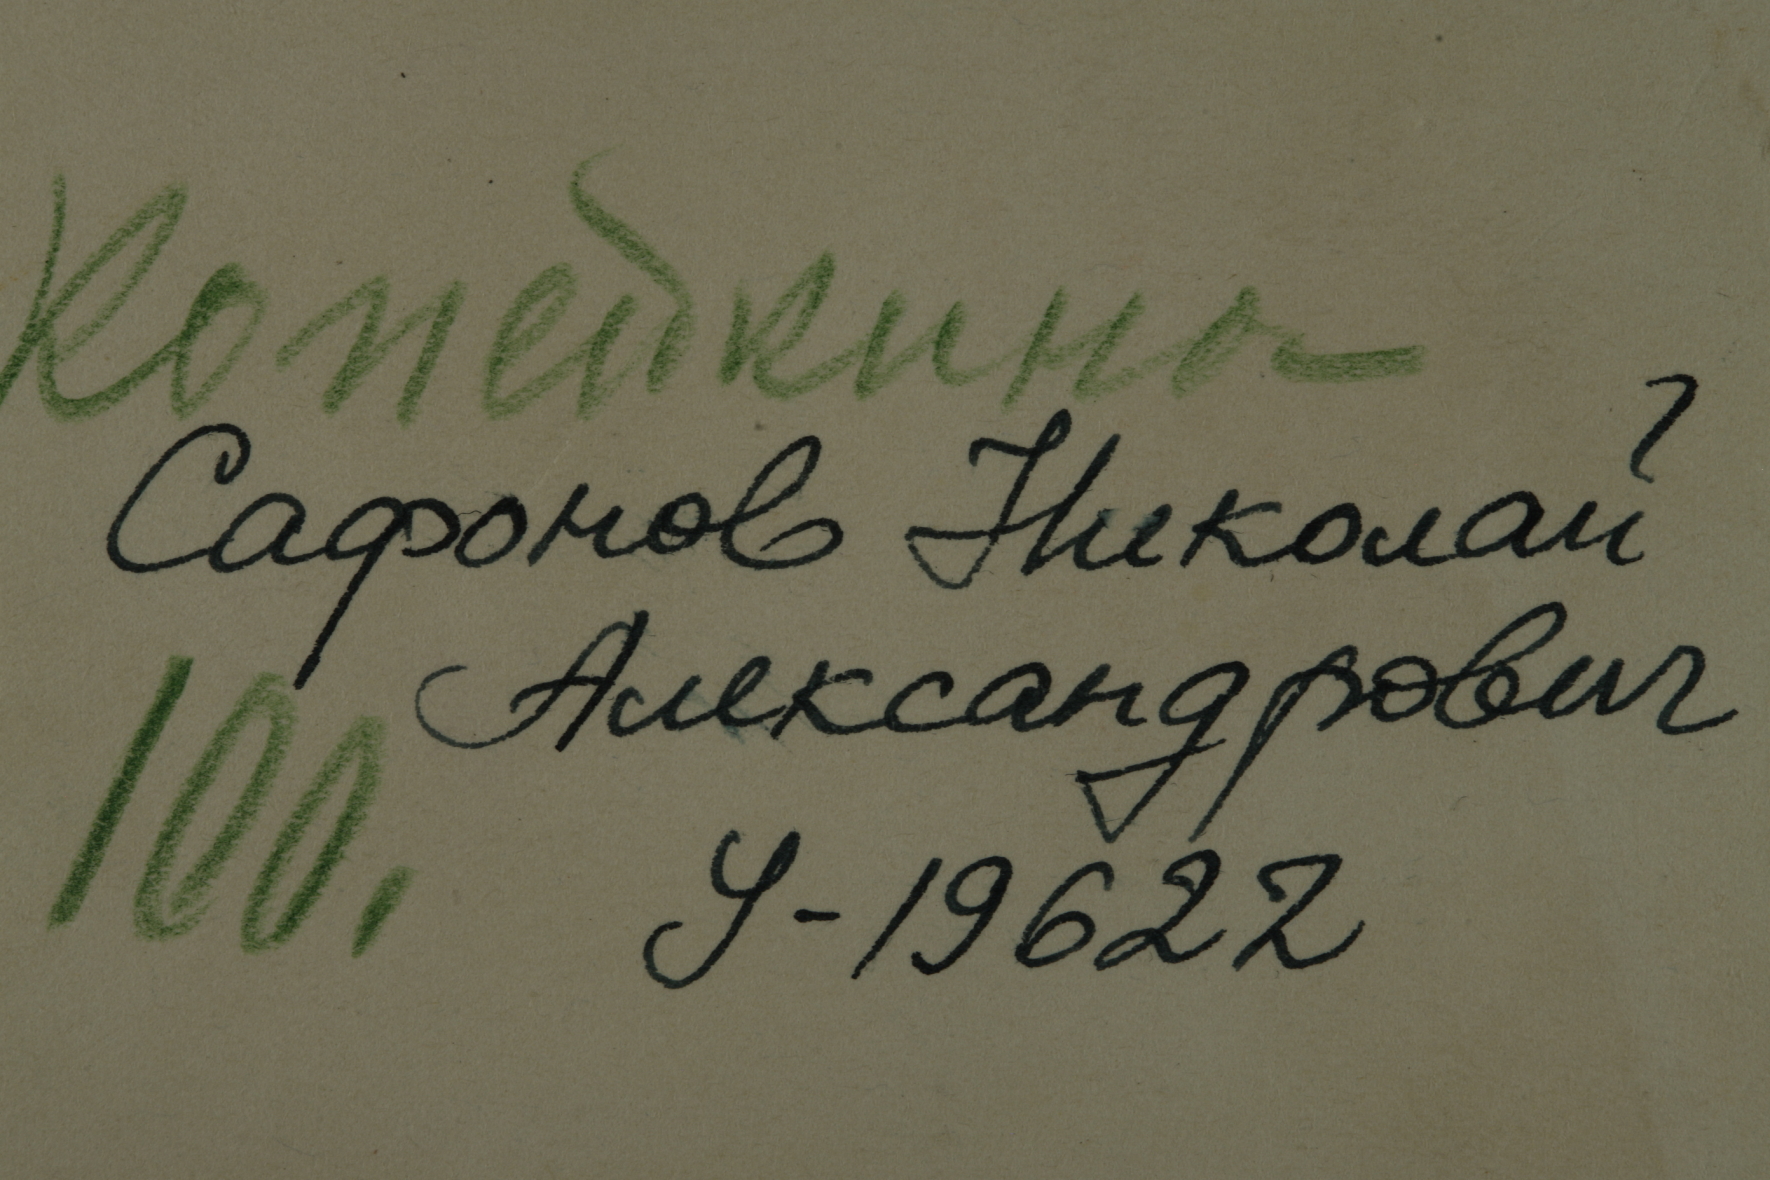 Копейкина
Сафонов Николай
Александрович
100.
У-19622